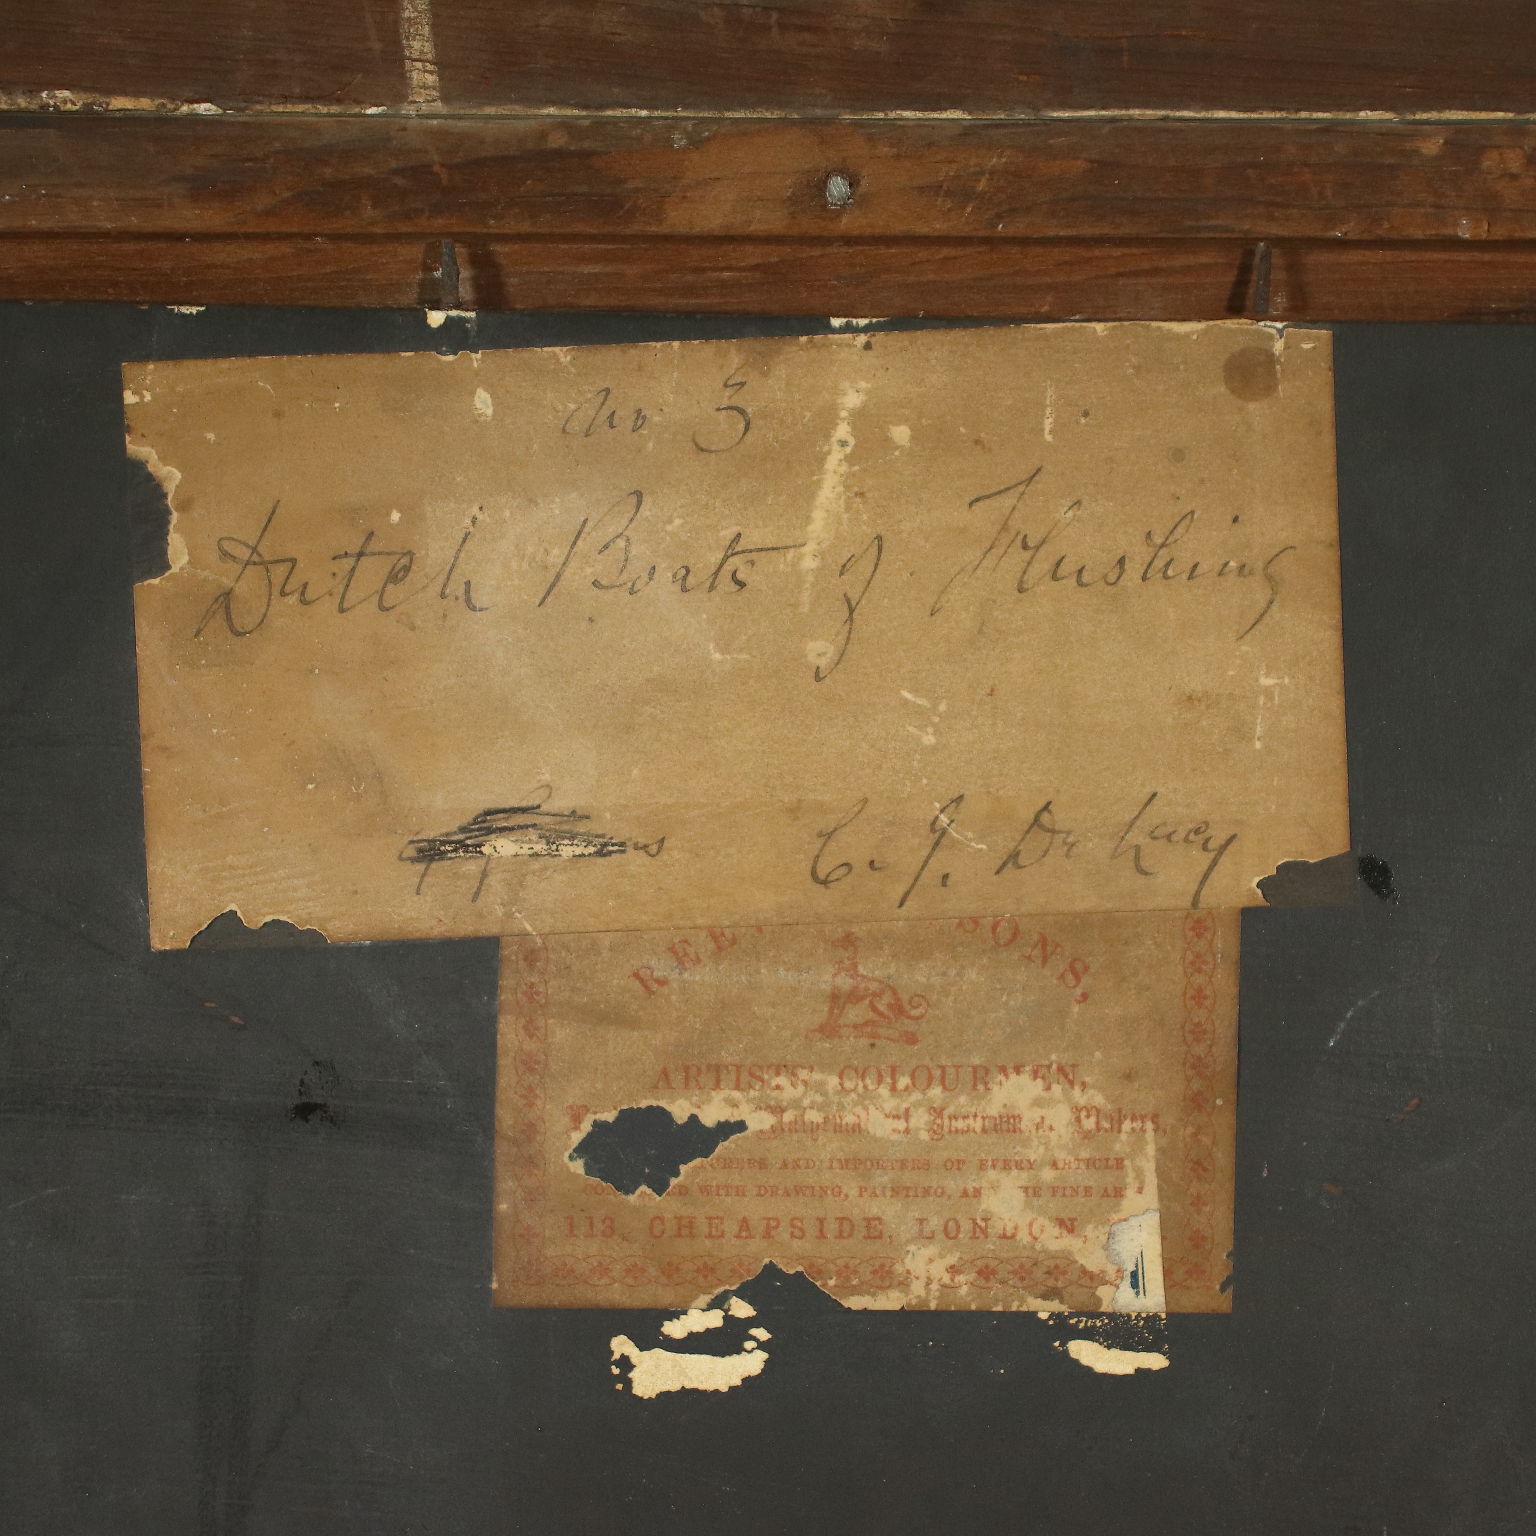 No 3
Dutch Boats of Flushing
C. J. De Lacy
REE SONS,
ARTISTS' COLOURMEN,
Instrum Makers,
AND IMPORTERS OF EVERY ARTICLE
WITH DRAWING, PAINTING, AN HE FINE AR
113, CHEAPSIDE, LONDON,